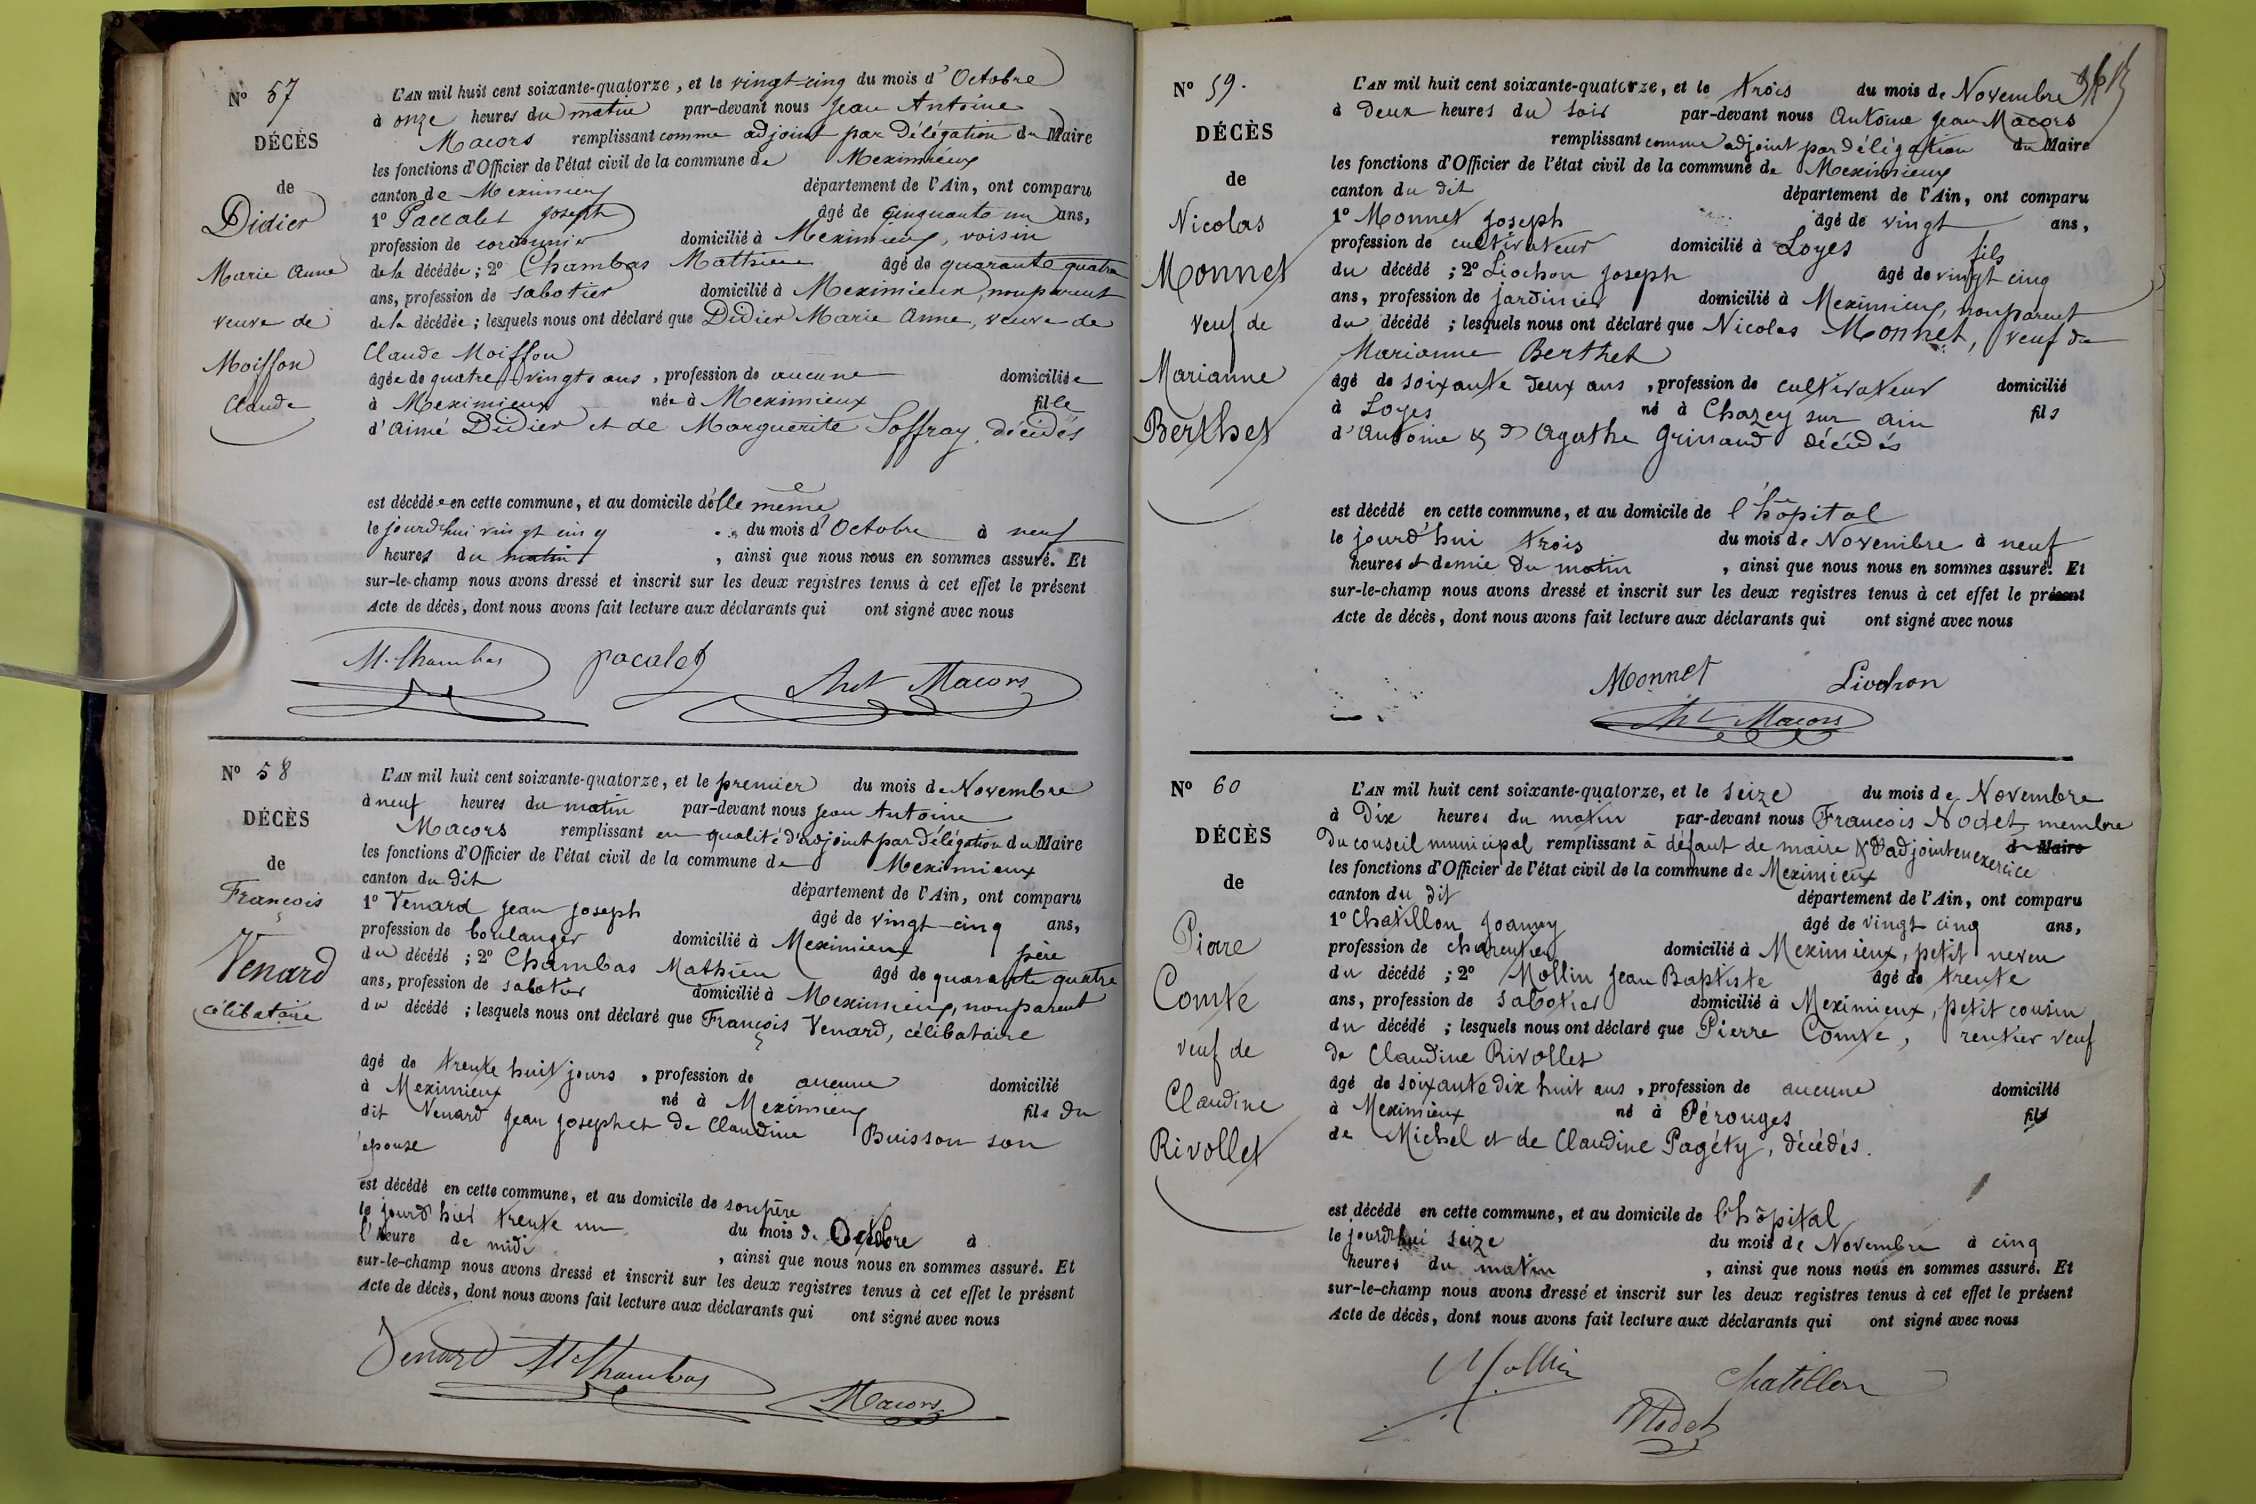 Nº 57
DÉCÈS
de
Didier
Marie Anne
veuve de
Moiffon
Claude
L'AN mil huit cent soixante-quatorze, et le vingt-cinq du mois d'Octobre
à onze heures du matin par-devant nous Jean Antoine
Macors remplissant comme adjoint par Délégation du Maire
les fonctions d'Officier de l'état civil de la commune de Meximieux
canton de Meximieux département de l'Ain, ont comparu
1º Paccalet Joseph âgé de cinquante un ans,
profession de cordonnier domicilié à Meximieux, voisin
de la décédée ; 2º Chambas Mathieu âgé de quarante quatre
ans, profession de sabotier domicilié à Meximieux, non parent
de la décédée ; lesquels nous ont déclaré que Didier Marie Anne, veuve de
Claude Moiffon
âgée de quatre vingts ans, profession de aucune domiciliée
à Meximieux née à Meximieux fille
d'Aimé Didier et de Marguerite Soffray, décédés
est décédée en cette commune, et au domicile d'elle même
le jourd'hui vingt cinq du mois d'Octobre à neuf
heures du matin, ainsi que nous nous en sommes assuré. Et
sur-le-champ nous avons dressé et inscrit sur les deux registres tenus à cet effet le présent
Acte de décès, dont nous avons fait lecture aux déclarants qui ont signé avec nous
M. Chambas pacalet Ant Macors
Nº 58
DÉCÈS
de
François
Venard
célibataire
L'AN mil huit cent soixante-quatorze, et le premier du mois de Novembre
à neuf heures du matin par-devant nous Jean Antoine
Macors remplissant en qualité d'adjoint par Délégation du Maire
les fonctions d'Officier de l'état civil de la commune de Meximieux
canton du dit département de l'Ain, ont comparu
1º Venard Jean Joseph âgé de vingt-cinq ans,
profession de boulanger domicilié à Meximieux père
du décédé ; 2º Chambas Mathieu âgé de quarante quatre
ans, profession de sabotier domicilié à Meximieux, non parent
du décédé ; lesquels nous ont déclaré que François Venard, célibataire
âgé de trente huit jours, profession de aucune domicilié
à Meximieux né à Meximieux fils du
dit Venard Jean Joseph et de Claudine Buisson son
épouse
est décédé en cette commune, et au domicile de son père
le jourd'hier trente un du mois d'Octobre à
l'heure de midi, ainsi que nous nous en sommes assuré. Et
sur-le-champ nous avons dressé et inscrit sur les deux registres tenus à cet effet le présent
Acte de décès, dont nous avons fait lecture aux déclarants qui ont signé avec nous
Venard M Chambas Macors
Nº 59.
DÉCÈS
de
Nicolas
Monnet
veuf de
Marianne
Berthet
L'AN mil huit cent soixante-quatorze, et le trois du mois de Novembre
à deux heures du soir par-devant nous Antoine Jean Macors
remplissant comme adjoint par délégation du Maire
les fonctions d'Officier de l'état civil de la commune de Meximieux
canton du dit département de l'Ain, ont comparu
1º Monnet Joseph âgé de vingt ans,
profession de cultivateur domicilié à Loyes fils
du décédé ; 2º Liochon Joseph âgé de vingt cinq
ans, profession de jardinier domicilié à Meximieux, non parent
du décédé ; lesquels nous ont déclaré que Nicolas Monnet, veuf de
Marianne Berthet
âgé de soixante deux ans, profession de cultivateur domicilié
à Loyes né à Chazey sur ain fils
d'Antoine & d'Agathe Grinand décédés
est décédé en cette commune, et au domicile de l'hôpital
le jourd'hui trois du mois de Novembre à neuf
heures et demie du matin, ainsi que nous nous en sommes assuré. Et
sur-le-champ nous avons dressé et inscrit sur les deux registres tenus à cet effet le présent
Acte de décès, dont nous avons fait lecture aux déclarants qui ont signé avec nous
Monnet Liochon
Ant Macors
Nº 60
DÉCÈS
de
Pierre
Comte
veuf de
Claudine
Rivollet
L'AN mil huit cent soixante-quatorze, et le seize du mois de Novembre
à Dix heures du matin par-devant nous François Nodet, membre
du conseil municipal remplissant à défaut de maire & d'adjoint en exercice d Maire
les fonctions d'Officier de l'état civil de la commune de Meximieux
canton du dit département de l'Ain, ont comparu
1º Chatillon Joanny âgé de vingt cinq ans,
profession de charentier domicilié à Meximieux, petit neveu
du décédé ; 2º Mollin Jean Baptiste âgé de trente
ans, profession de sabotier domicilié à Meximieux, petit cousin
du décédé ; lesquels nous ont déclaré que Pierre Comte, rentier veuf
de Claudine Rivollet
âgé de soixante dix huit ans, profession de aucune domicilié
à Meximieux né à Pérouges fils
de Michel et de Claudine Pagéty, décédés.
est décédé en cette commune, et au domicile de l'hôpital
le jourd'hui seize du mois de Novembre à cinq
heures du matin, ainsi que nous nous en sommes assuré. Et
sur-le-champ nous avons dressé et inscrit sur les deux registres tenus à cet effet le présent
Acte de décès, dont nous avons fait lecture aux déclarants qui ont signé avec nous
Mollin chatillon
Nodet